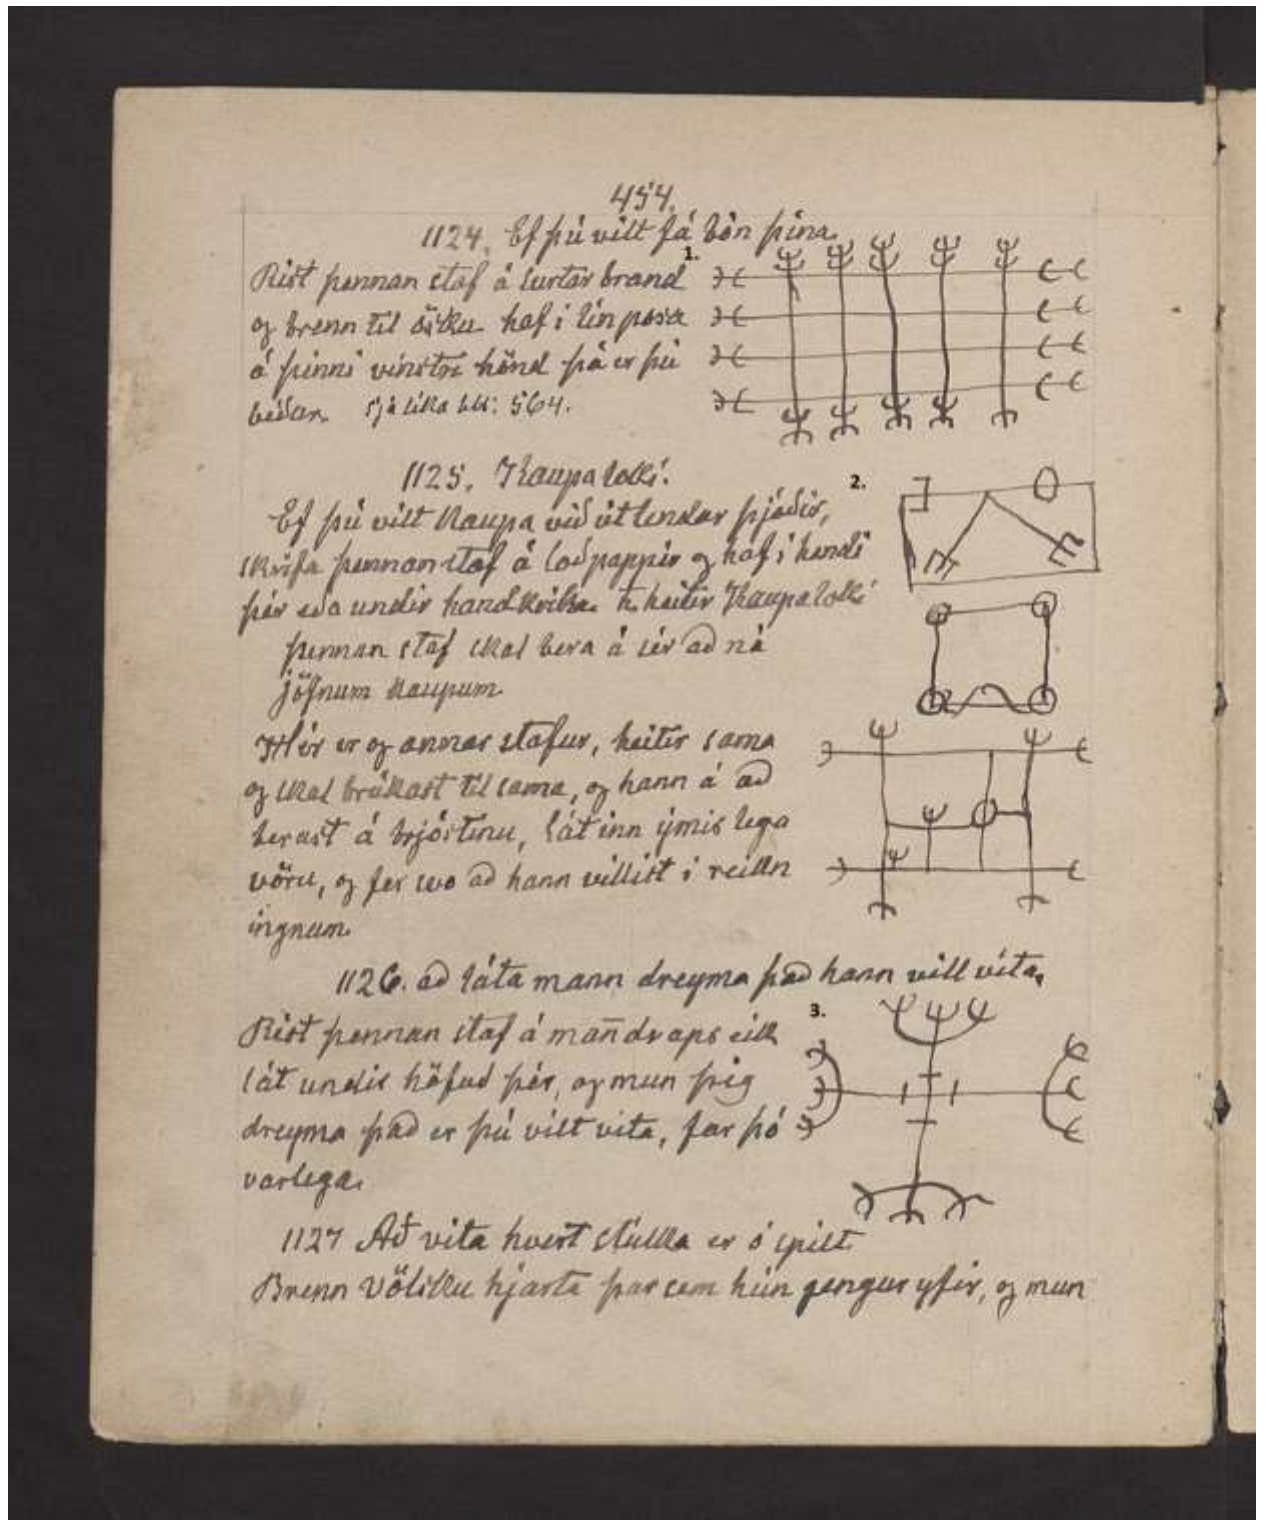 454.
1124. Ef þú vilt fá bón þína
1.
Rist þennan staf á surtar brand
og brenn til ösku haf í lín posa
á þinni vinstri hönd þá er þú
biður. sjá líka bls: 564.
1125. Kaupaloki.
2.
Ef þú vilt kaupa við útlendar þjóðir,
skrifa þennan staf á loðpappír og haf í hendi
þér eða undir handkrika. h. heitir Kaupaloki
þennan staf skal bera á sér að ná
jöfnum kaupum.
Hér er og annar stafur, heitir sama
og skal brúkast til sama, og hann á að
berast á brjóstinu, lát inn ýmis lega
vöru, og fer svo að hann villist í reikn
ingnum.
1126. að láta mann dreyma það hann vill vita.
3.
Rist þennan staf á mann̄draps eik
lát undir höfuð þér, og mun þig
dreyma það er þú vilt vita, far þó
varlega.
1127 Að vita hvert stúlka er ó spilt
Brenn Völsku hjarta þar sem hún gengur yfir, og mun